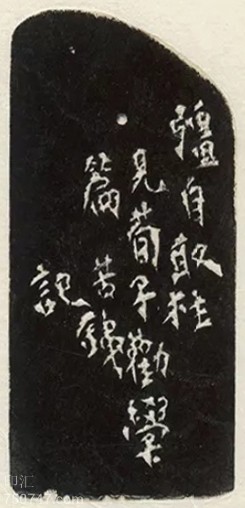 彊自取柱
見荀子勸學
篇苦鐵
記